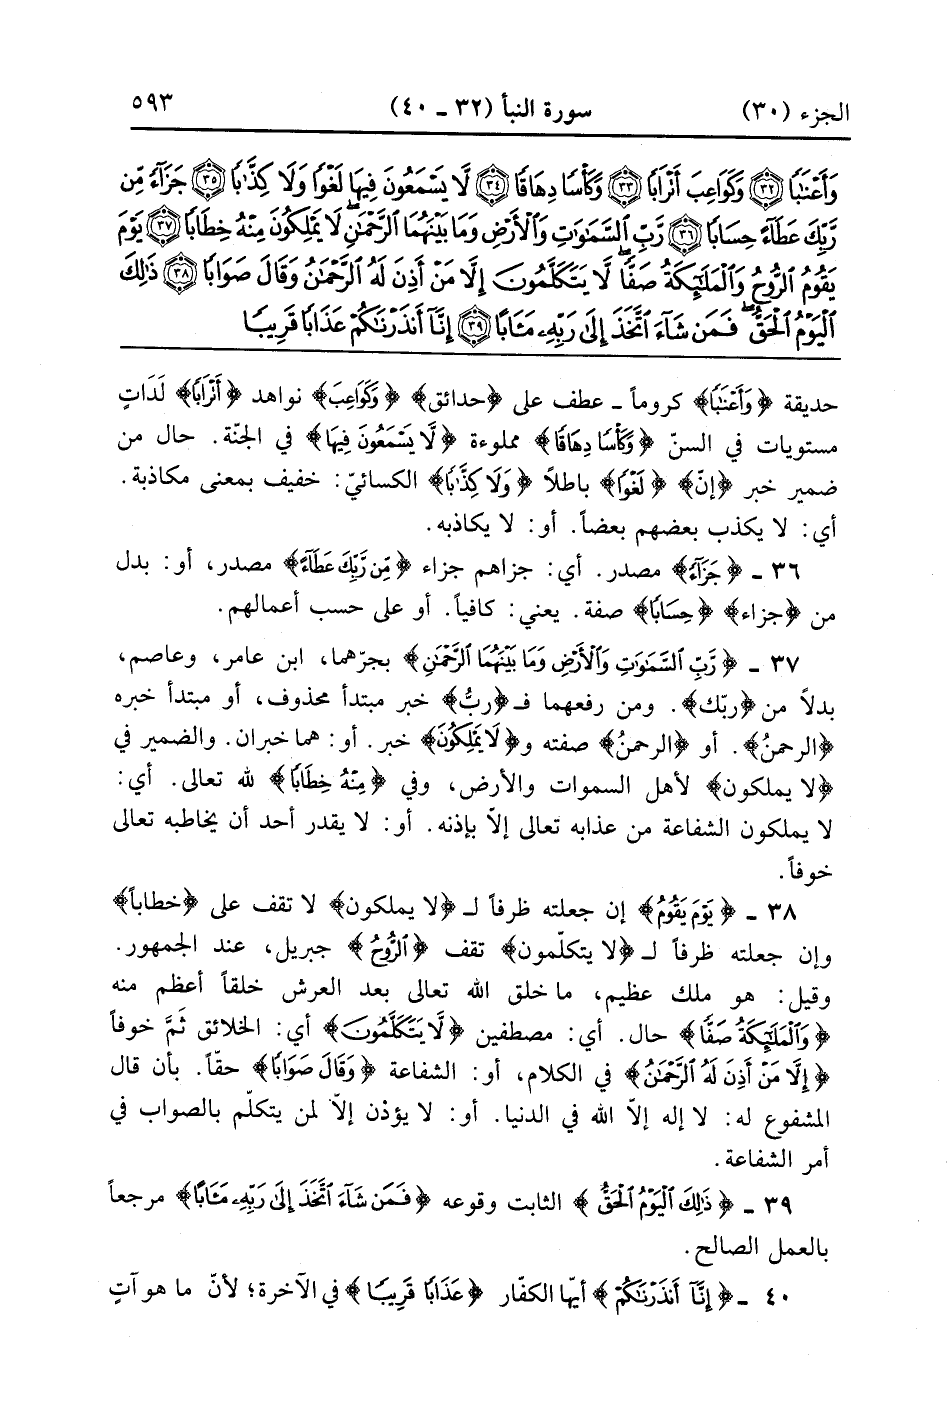 الجزء (٣٠) سورة النبأ (٣٢ ـ ٤٠) ٥٩٣
وَأَعْنَٰبًا ﴿٣٢﴾ وَكَوَاعِبَ أَتْرَابًا ﴿٣٣﴾ وَكَأْسًا دِهَاقًا ﴿٣٤﴾ لَّا يَسْمَعُونَ فِيهَا لَغْوًا وَلَا كِذَّٰبًا ﴿٣٥﴾ جَزَآءً مِّن
رَّبِّكَ عَطَآءً حِسَابًا ﴿٣٦﴾ رَّبِّ ٱلسَّمَٰوَٰتِ وَٱلْأَرْضِ وَمَا بَيْنَهُمَا ٱلرَّحْمَٰنِ ۖ لَا يَمْلِكُونَ مِنْهُ خِطَابًا ﴿٣٧﴾ يَوْمَ
يَقُومُ ٱلرُّوحُ وَٱلْمَلَٰٓئِكَةُ صَفًّا ۖ لَّا يَتَكَلَّمُونَ إِلَّا مَنْ أَذِنَ لَهُ ٱلرَّحْمَٰنُ وَقَالَ صَوَابًا ﴿٣٨﴾ ذَٰلِكَ
ٱلْيَوْمُ ٱلْحَقُّ ۖ فَمَن شَآءَ ٱتَّخَذَ إِلَىٰ رَبِّهِۦ مَـَٔابًا ﴿٣٩﴾ إِنَّآ أَنذَرْنَٰكُمْ عَذَابًا قَرِيبًا
حديقة ﴿وَأَعْنَٰبًا﴾ كروماً ـ عطف على ﴿حدائق﴾ ﴿وَكَوَاعِبَ﴾ نواهد ﴿أَتْرَابًا﴾ لَدَاتٍ
مستويات في السنّ ﴿وَكَأْسًا دِهَاقًا﴾ مملوءة ﴿لَّا يَسْمَعُونَ فِيهَا﴾ في الجنّة. حال من
ضمير خبر ﴿إنّ﴾ ﴿لَغْوًا﴾ باطلاً ﴿وَلَا كِذَّٰبًا﴾ الكسائيّ: خفيف بمعنى مكاذبة.
أي: لا يكذب بعضهم بعضاً. أو: لا يكاذبه.
٣٦ ـ ﴿جَزَآءً﴾ مصدر. أي: جزاهم جزاء ﴿مِّن رَّبِّكَ عَطَآءً﴾ مصدر، أو: بدل
من ﴿جزاء﴾ ﴿حِسَابًا﴾ صفة. يعني: كافياً. أو على حسب أعمالهم.
٣٧ ـ ﴿رَّبِّ ٱلسَّمَٰوَٰتِ وَٱلْأَرْضِ وَمَا بَيْنَهُمَا ٱلرَّحْمَٰنِ﴾ بجرّهما، ابن عامر، وعاصم،
بدلاً من ﴿ربّك﴾. ومن رفعهما فـ﴿ربُّ﴾ خبر مبتدأ محذوف، أو مبتدأ خبره
﴿الرحمنُ﴾. أو ﴿الرحمنُ﴾ صفته و﴿لَا يَمْلِكُونَ﴾ خبر. أو: هما خبران. والضمير في
﴿لا يملكون﴾ لأهل السموات والأرض، وفي ﴿مِنْهُ خِطَابًا﴾ لله تعالى. أي:
لا يملكون الشفاعة من عذابه تعالى إلاّ بإذنه. أو: لا يقدر أحد أن يخاطبه تعالى
خوفاً.
٣٨ ـ ﴿يَوْمَ يَقُومُ﴾ إن جعلته ظرفاً لـ ﴿لا يملكون﴾ لا تقف على ﴿خطاباً﴾
وإن جعلته ظرفاً لـ ﴿لا يتكلّمون﴾ تقف ﴿ٱلرُّوحُ﴾ جبريل، عند الجمهور.
وقيل: هو ملك عظيم، ما خلق الله تعالى بعد العرش خلقاً أعظم منه
﴿وَٱلْمَلَٰٓئِكَةُ صَفًّا﴾ حال. أي: مصطفين ﴿لَّا يَتَكَلَّمُونَ﴾ أي: الخلائق ثَمَّ خوفاً
﴿إِلَّا مَنْ أَذِنَ لَهُ ٱلرَّحْمَٰنُ﴾ في الكلام، أو: الشفاعة ﴿وَقَالَ صَوَابًا﴾ حقّاً. بأن قال
المشفوع له: لا إله إلاّ الله في الدنيا. أو: لا يؤذن إلاّ لمن يتكلّم بالصواب في
أمر الشفاعة.
٣٩ ـ ﴿ذَٰلِكَ ٱلْيَوْمُ ٱلْحَقُّ﴾ الثابت وقوعه ﴿فَمَن شَآءَ ٱتَّخَذَ إِلَىٰ رَبِّهِۦ مَـَٔابًا﴾ مرجعاً
بالعمل الصالح.
٤٠ ـ ﴿إِنَّآ أَنذَرْنَٰكُمْ﴾ أيّها الكفّار ﴿عَذَابًا قَرِيبًا﴾ في الآخرة؛ لأنّ ما هو آتٍ